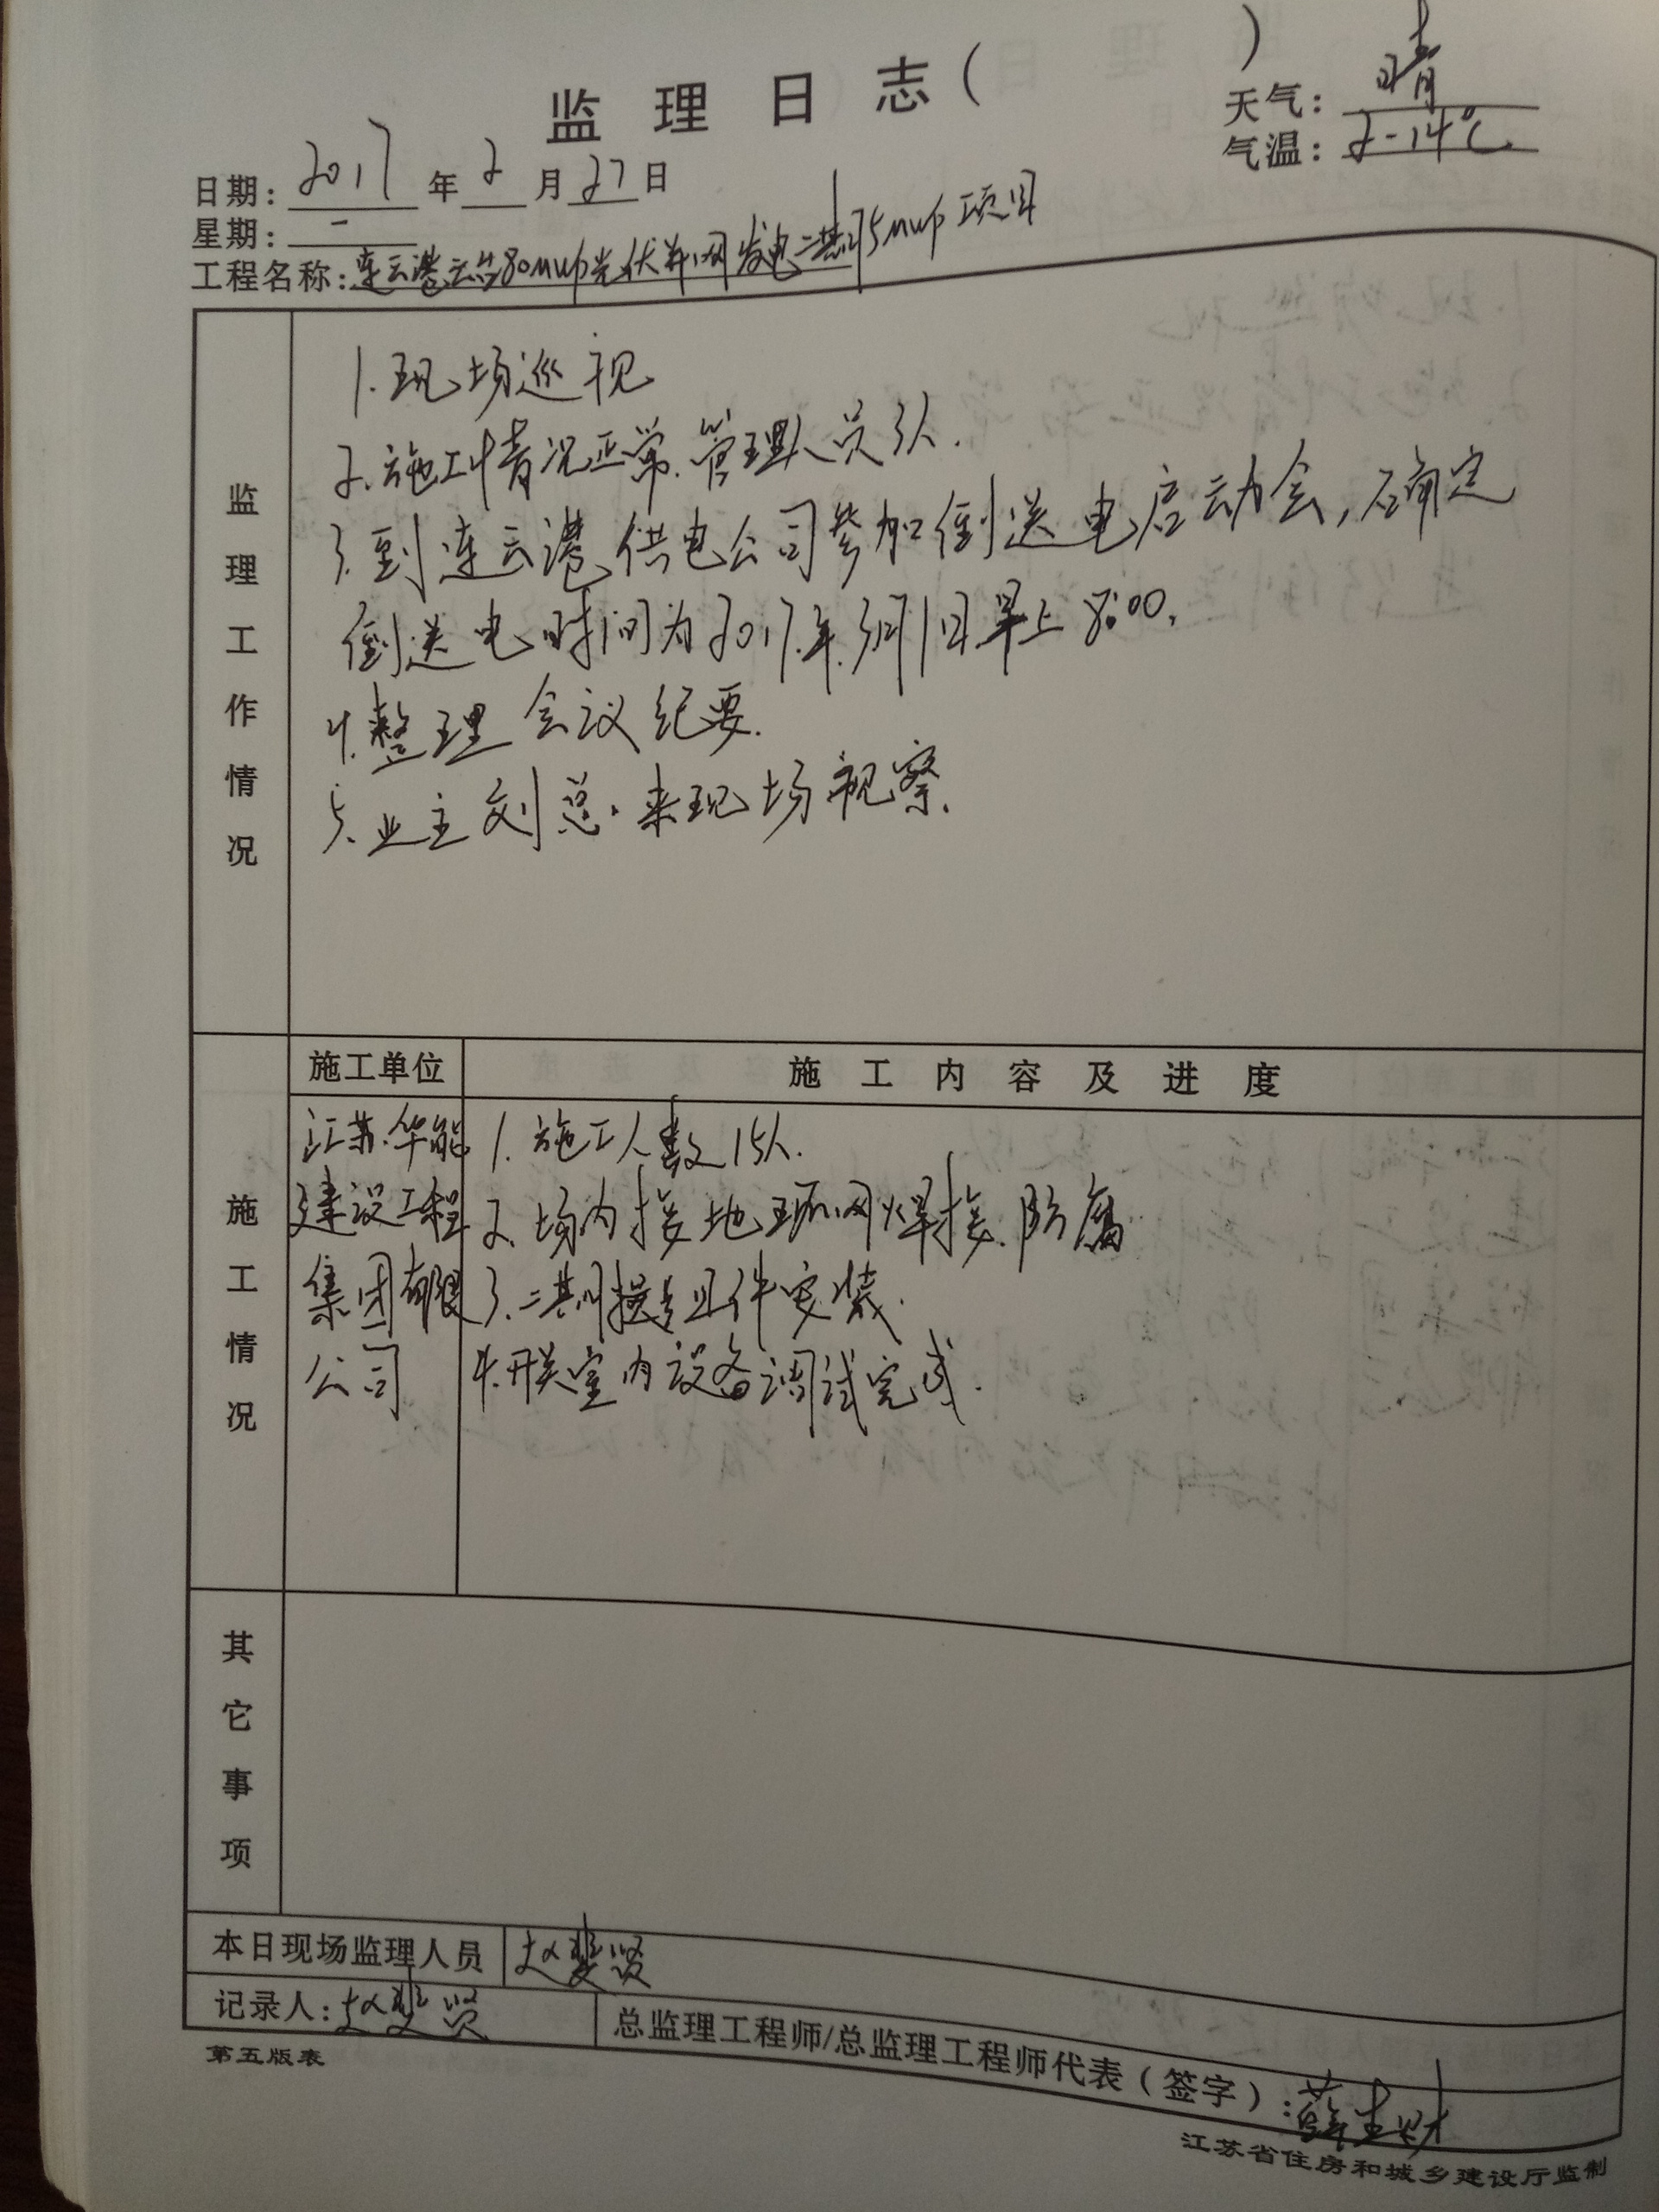 监理日志(          )
天气: 晴
气温: 2-14℃
日期: 2017年2月27日
星期: 一
工程名称: 连云港云台80MWp光伏并网发电二期75MWp项目
监理工作情况
1.现场巡视
2.施工情况正常.管理人员3人.
3.到连云港供电公司参加倒送电启动会,确定
倒送电时间为2017.年.3月1日早上8:00.
4.整理会议纪要.
5.业主刘总.来现场视察.
施工单位 施工内容及进度
施工情况
江苏华能 1.施工人数15人.
建设工程 2.场内接地环网焊接.防腐
集团有限 3.二期组件安装.
公司 4.开关室内设备调试完成.
其它事项
本日现场监理人员 赵斐贤
记录人:赵斐贤 总监理工程师/总监理工程师代表(签字):薛生财
第五版表
江苏省住房和城乡建设厅监制